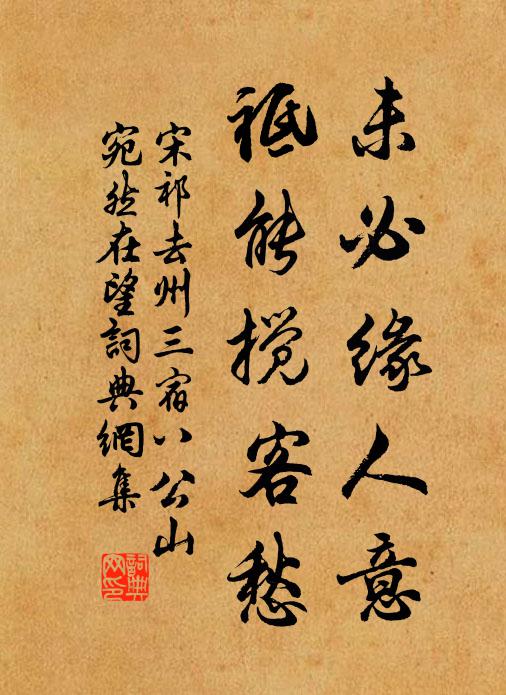 未必缘人意
祗能搅客愁
宋祁去州三宿八公山
宛然在望詞典網集
詞典
网印